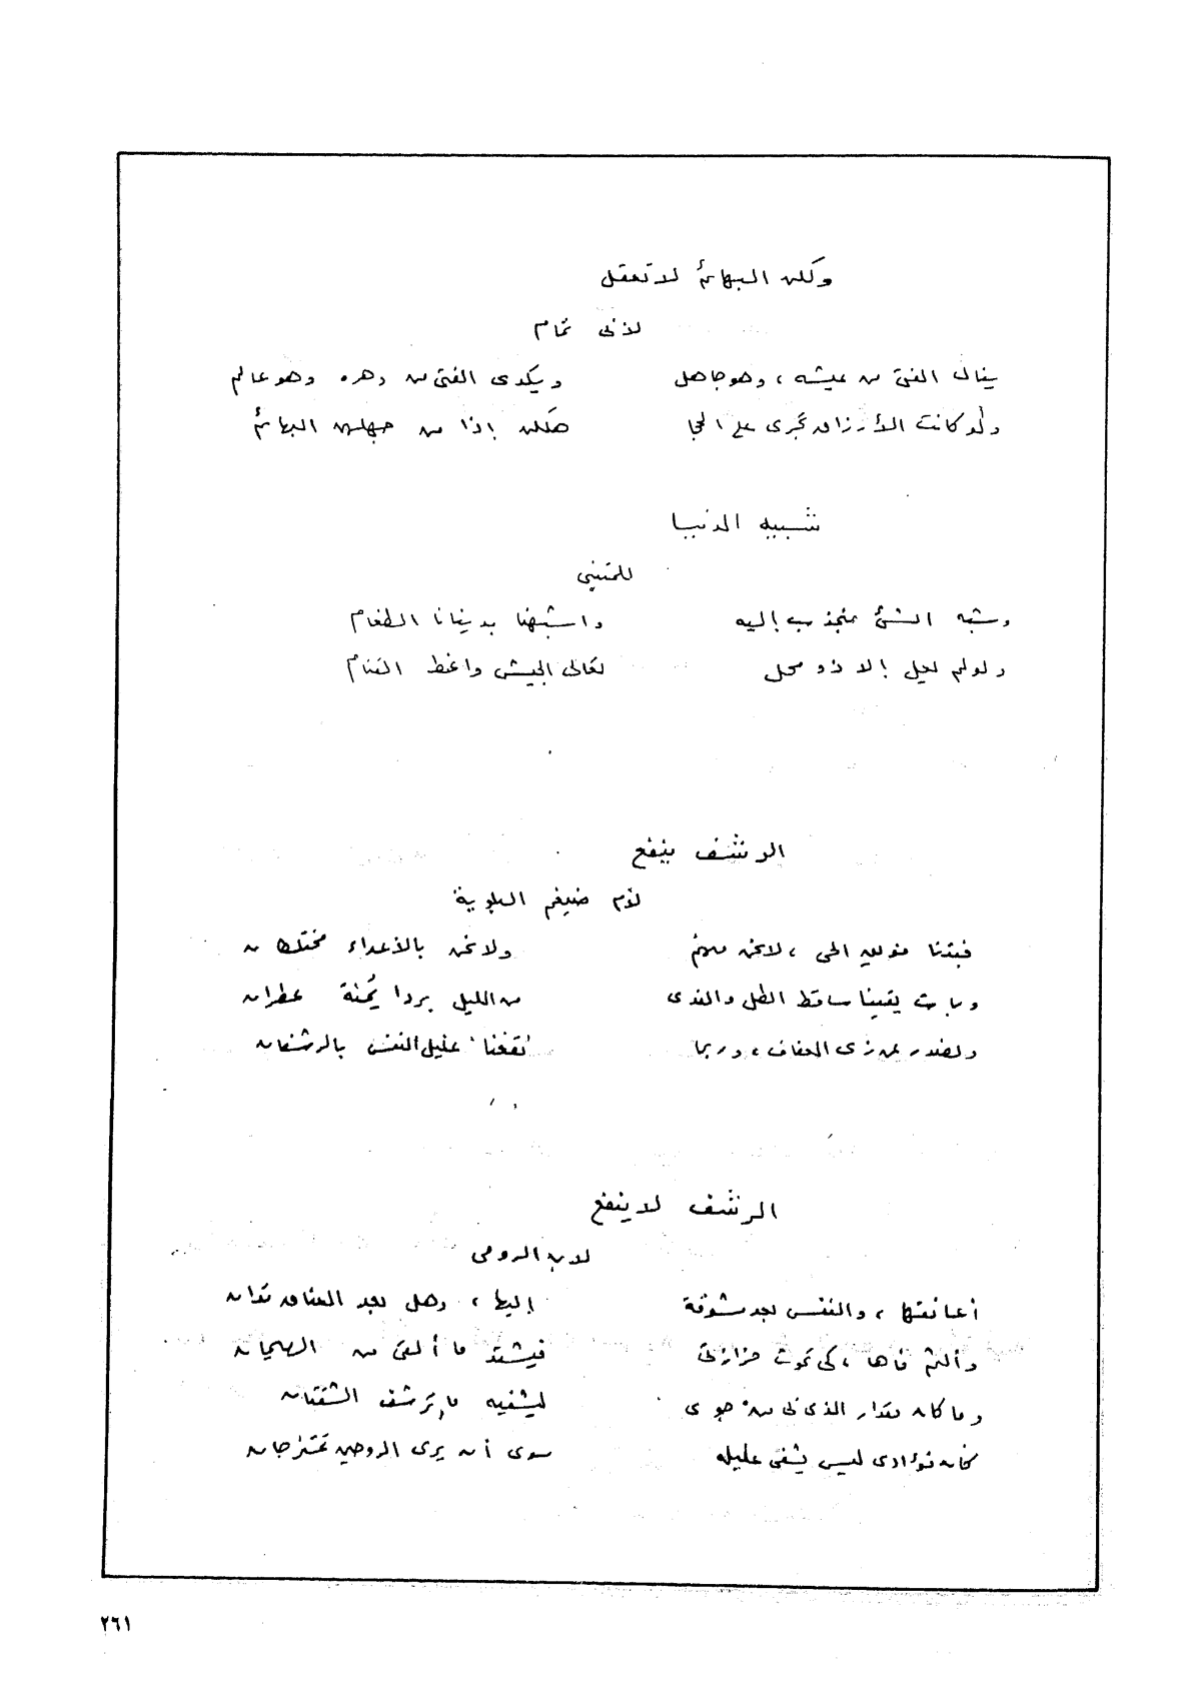 ولكن البهائم لا تعقل
لأبي تمام
ينال الفتى من عيشه ، وهو جاهل ويكدى الفتى من دهره وهو عالم
ولو كانت الأرزاق تجرى على الحجا هلكن إذا من جهلهن البهائم
شبيه الدنيا
للمتنبي
وشبه الشئ منجذب إليه وأشبهنا بدنيانا الطغام
ولو لم يعل إلا ذو محل تعالى الجيش وانحط القتام
الرشف ينفع
لأم ضيغم البلوية
فبتنا فويق الحى ، لا نحن منهم ولا نحن بالأعداء مختلطان
وبات يقينا ساقط الطل والندى من الليل بردا يُمنة عطران
ونصدر عن رى العفاف ، وربما نقعنا غليل النفس بالرشفان
الرشف لا ينفع
لابن الرومى
أعانقها ، والنفس بعد مشوقة إليها ، وهل بعد العناق تدان
وألثم فاها ، كى تموت حزازتى فيشتد ما ألقى من الهيمان
وما كان مقدار الذى بى من جوى ليشفيه ما ترشف الشفتان
كأن فؤادى ليس يشفى غليله سوى أن يرى الروحين تمتزجان
٢٦١